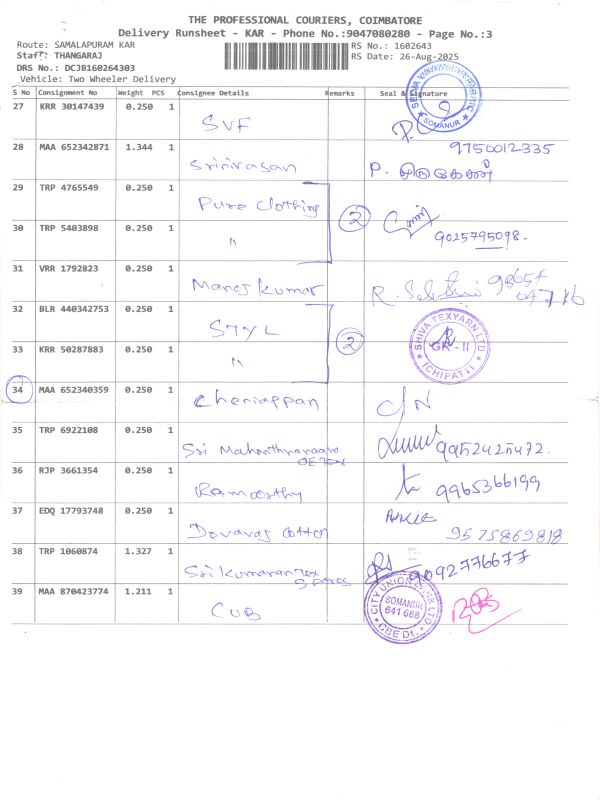 THE PROFESSIONAL COURIERS, COIMBATORE
Delivery Runsheet - KAR - Phone No.:9047080280 - Page No.:3
Route: SAMALAPURAM KAR RS No.: 1602643
Staff: THANGARAJ RS Date: 26-Aug-2025
DRS No.: DCJB160264303
Vehicle: Two Wheeler Delivery
S No Consignment No Weight PCS Consignee Details Remarks Seal & Signature
27 KRR 30147439 0.250 1 SVF SOMANUR
28 MAA 652342871 1.344 1 Srinivasan 9750012335
29 TRP 4765549 0.250 1 Pure Clothing 2
30 TRP 5403898 0.250 1 " 9025795098.
31 VRR 1792823 0.250 1 Manoj Kumar
32 BLR 440342753 0.250 1 STYL 2 SHIVA TEXYARN LTD
33 KRR 50287883 0.250 1 " GR - II ICHIPATTI
34 MAA 652340359 0.250 1 Cheniappan C/N
35 TRP 6922108 0.250 1 Sri 9952425472.
36 RJP 3661354 0.250 1 9965366199
37 EDQ 17793748 0.250 1 cotton 9575869818
38 TRP 1060874 1.327 1 Sri Kumaran Tex Spares 9092776677
39 MAA 870423774 1.211 1 CUB CITY UNION BANK LTD
SOMANUR
641 668
CBE Dt.